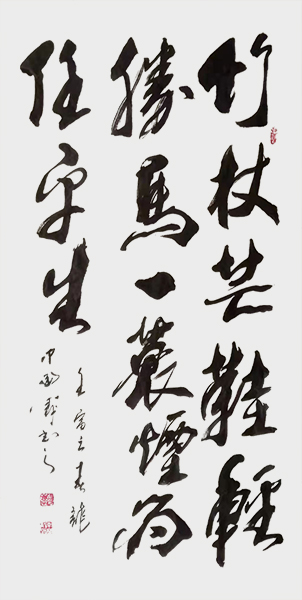 竹杖芒鞋輕
勝馬一蓑煙雨
任平生
壬寅之春